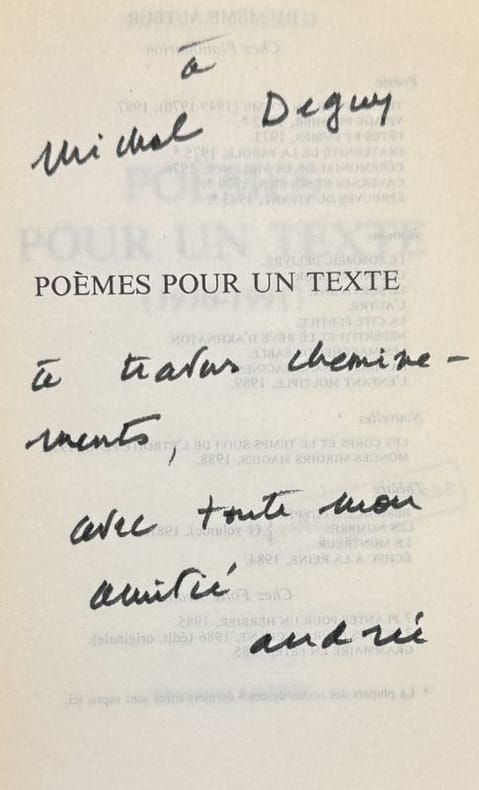 à
Michel Deguy
POÈMES POUR UN TEXTE
à travers chemine-
ments,
avec toute mon
amitié
andrée